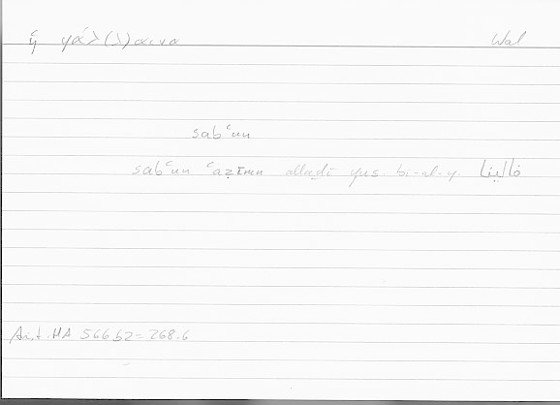 ἡ φάλ(λ)αινα Wal
sabʿun
sabʿun ʿaẓīmun allaḏī yus. bi-al-y. فالينا
Arist. HA 566 b2 = 268.6